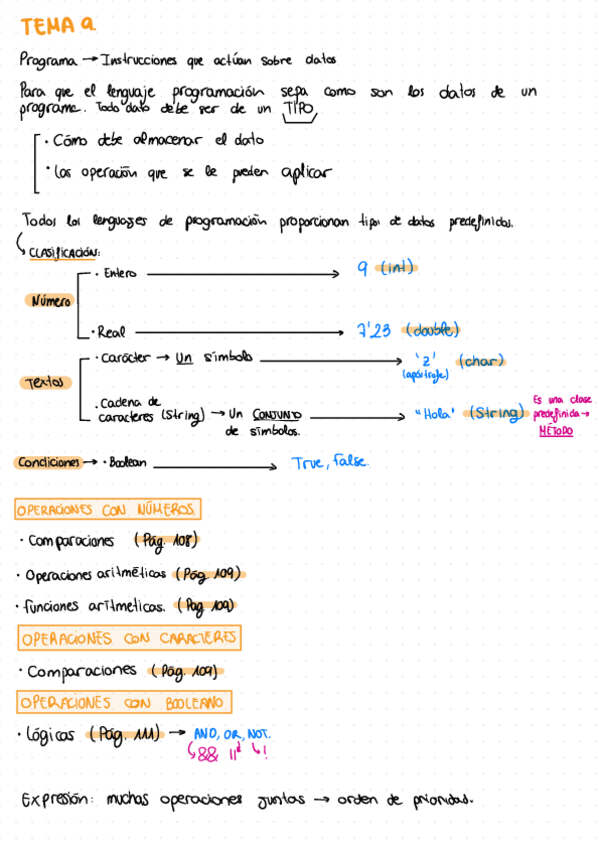 TEMA 9
Programa → Instrucciones que actúan sobre datos
Para que el lenguaje programación sepa como son los datos de un
programa. Todo dato debe ser de un TIPO
· Cómo debe almacenar el dato
· Las operación que se le pueden aplicar
Todos los lenguajes de programación proporcionan tipos de datos predefinidos.
CLASIFICACIÓN:
Número
· Entero → 9 (int)
· Real → 7'23 (double)
Textos
· Carácter → Un símbolo → '2' (char)
(apóstrofe)
· Cadena de
caracteres (String) → Un CONJUNTO → "Hola" (String)
de símbolos.
Es una clase
predefinida →
MÉTODO
Condiciones → · Boolean → True, False.
OPERACIONES CON NÚMEROS
· Comparaciones (Pág. 108)
· Operaciones aritméticas (Pág. 109)
· Funciones aritmeticas. (Pag. 109)
OPERACIONES CON CARACTERES
· Comparaciones (Pág. 109)
OPERACIONES CON BOOLEANO
· Lógicas (Pág. 111) → AND, OR, NOT.
&& || !
Expresión: muchas operaciones juntas → orden de prioridas.